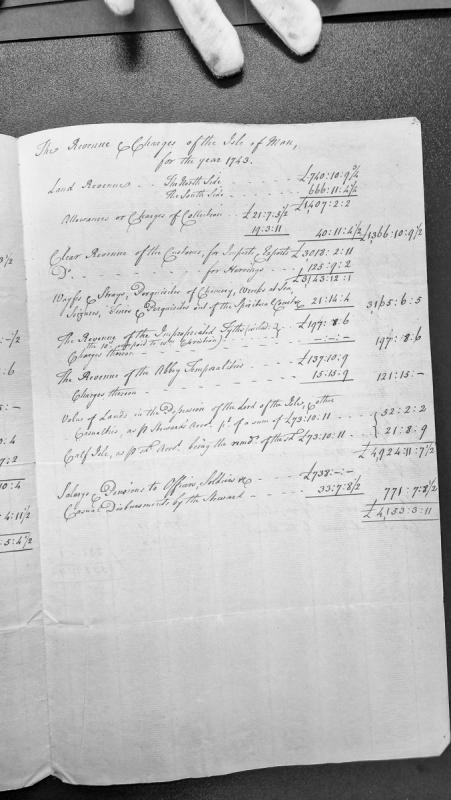 3/2
-:-/2
:6
5:-
3:4
7:2
10:4
4:11/2
:5:4 1/2
The Revenue & Charges of the Isle of Man,
for the year 1743.
Land Revenue - - The North Side - - - £740:10:9 3/4
The South Side - - - 666:11:4 1/4
£1407:2:2
Allowances or Charges of Collection - - £21:7:5 1/2
19:3:11 40:11:4 1/2 £1366:10:9 1/2
Clear Revenue of the Customs, for Import & Exports £3018:2:11
Do. - - - for Herrings - - - 125:9:2
£3143:12:1
Wayfs & Strays, Perquisites of Chancery, Wrecks at Sea,
Seizures, Fines & Perquisites out of the Spiritual Courts 21:14:4 3165:6:5
The Revenue of the Impropriated Tythes - - £197:8:6
Charges thereon - - - -:-:- 197:8:6
The Revenue of the Abbey Temporalities - - £137:10:9
Charges thereon - - - 15:15:9 121:15:-
Value of Lands in the Possession of the Lord of the Isle, & other
Casualties, as pr Stewards Accot. pt. of a sum of £73:10:11 - - 52:2:2
Calf Isle, as pr Do. Accot. being the remdr. of the sd. £73:10:11 - - 21:8:9
£4,924:11:7 1/2
Salarys & Pensions to Officers, Soldiers &c £738:-:-
Casual Disbursements by the Steward - - 33:7:8 1/2 771:7:8 1/2
£4,153:3:11